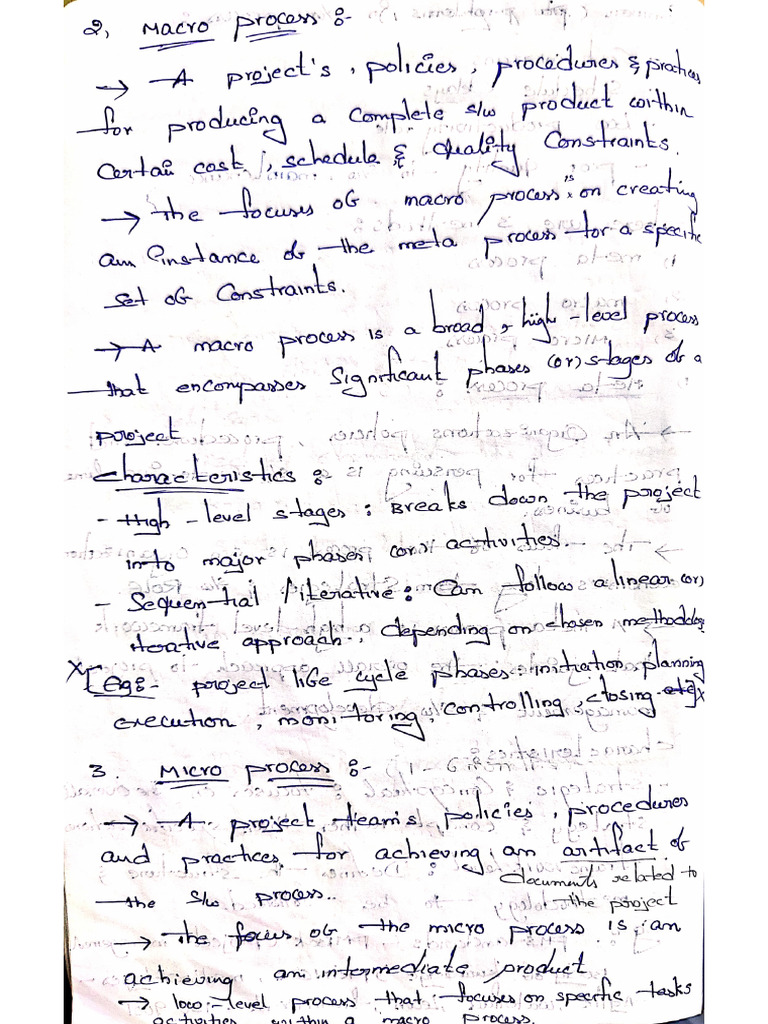 2, Macro process :-
→ A project's, policies, procedures & practices
for producing a complete s/w product within
certain cost, schedule & quality constraints.
→ The focuses of macro process is on creating
an instance of the meta process for a specific
set of constraints.
→ A macro process is a broad, high-level process
that encompasses significant phases (or) stages of a
project
characteristics :-
- High-level stages: Breaks down the project
into major phases (or) activities.
- Sequential / iterative: Can follow a linear (or)
iterative approach, depending on chosen methodology
x [Eg:- project life cycle phases initiation, planning
execution, monitoring, controlling, closing etc] x
3. Micro process :-
→ A project team's policies, procedures
and practices for achieving an artifact of
documents related to
the project
the s/w process.
→ The focus of the micro process is an
achieving an intermediate product
→ low-level process that focuses on specific tasks
activities within a macro process.